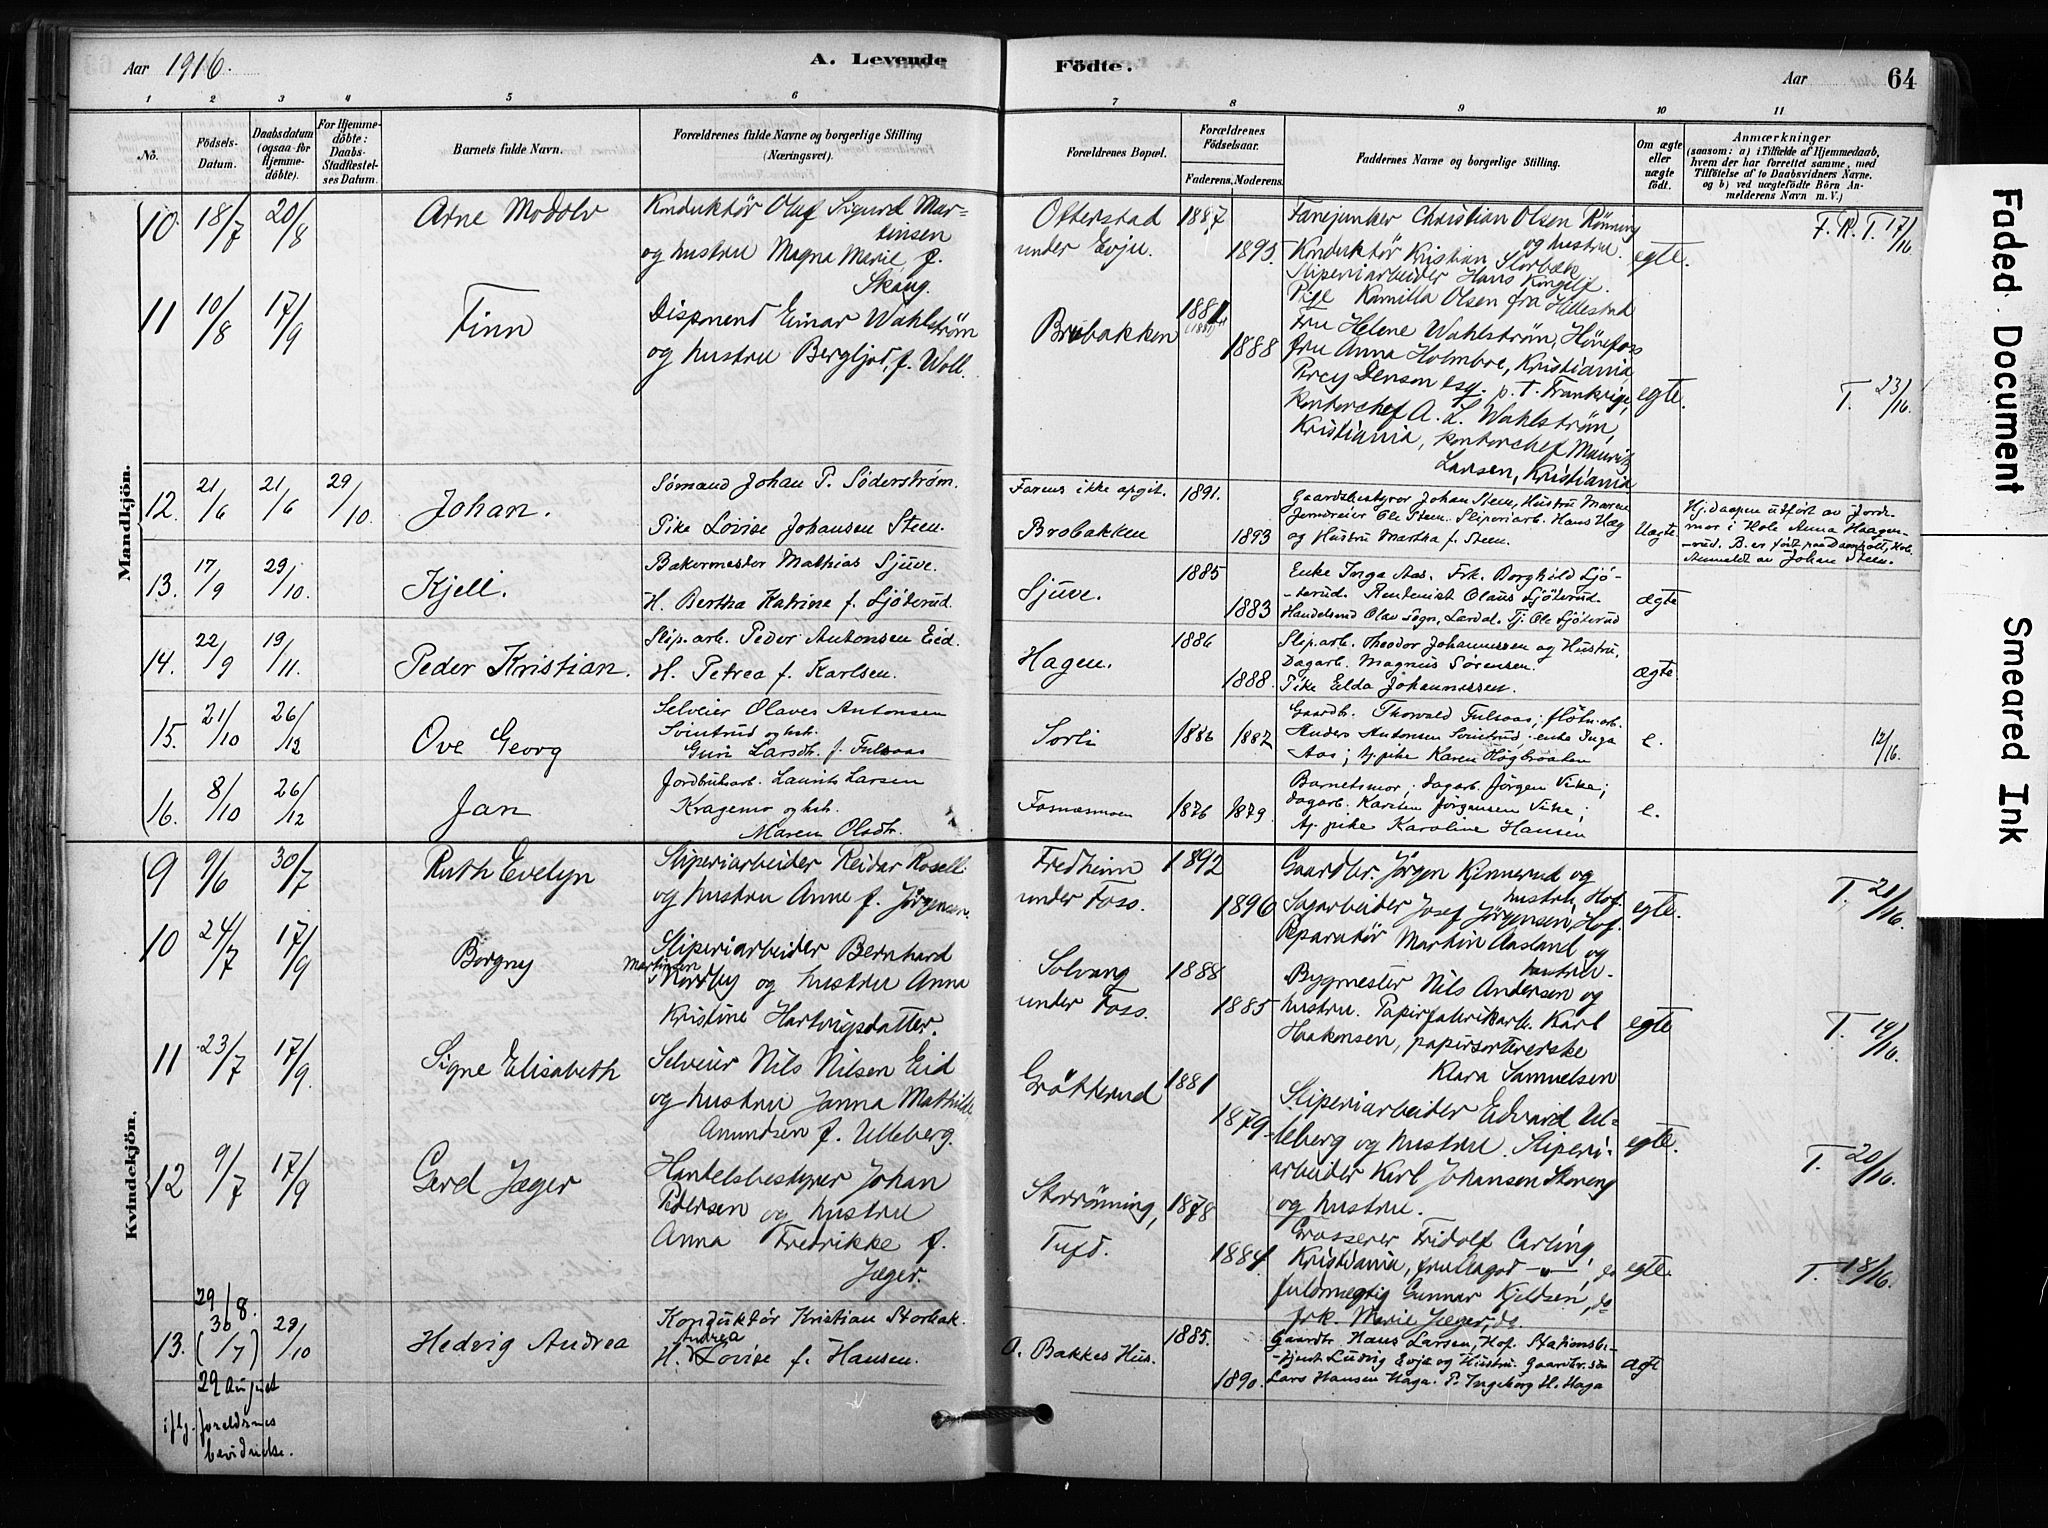 Aar 1916.
A. Levende
Födte.
Aar
64
1 2 3 4 5 6 7 8 9 10 11
No.
Födsels-
Datum.
Daabsdatum
(ogsaa for
Hjemme-
döbte).
For Hjemme-
döbte:
Daabs-
Stadfæstel-
ses Datum.
Barnets fulde Navn.
Forældrenes fulde Navne og borgerlige Stilling
(Næringsvei).
Forældrenes Bopæl.
Forældrenes
Födselsaar.
Faderens. Moderens.
Faddernes Navne og borgerlige Stilling.
Om ægte
eller
uægte
födt.
Anmærkninger
(saasom: a) i Tilfælde af Hjemmedaab,
hvem der har forrettet samme, med
Tilföielse af to Daabsvidners Navne.
og b) ved uægtefödte Börn An-
melderens Navn m. V.)
Mandkjön.
10. 18/7 20/8
Arne Modolv
Konduktør Oluf Sigurd Mar-
tensen
og hustru Magna Marie f.
Skaug.
Otterstad
under Evju.
1887
1895.
Fanejunker Christian Olsen Rönning
og hustru.
Konduktör Kristian Storbæk
Sliperiarbeider Hans Kongelf.
Pige Kamilla Olsen fra Hillestad
egte.
F. R. T. 17/16
11 10/8 17/9
Finn
Disponend Einar Wahlström
og hustru Bergljod, f. Woll.
Brobakken
1881
1888
Fru Helene Wahlström, Hönefoss
fru Anna Holmboe, Kristiania
Percy Denson esq. p. t. Frankrige,
kontorchef A. L. Wahlström,
Kristiania, kontorchef Mauritz
Larsen, Kristiania
egte.
T. 23/16.
12. 21/6 21/6 29/10.
Johan.
Sömand Johan P. Söderström.
Pike Lovise Johansen Steen.
Farens ikke opgit.
Brobakken
1891.
1893
Gaardsbestyrer Johan Steen, Hustru Maren
Jerndreier Ole Steen. Sliperiarb. Hans Hæg
og Hustru Martha f. Steen.
Uægte
Hj.daapen utført av Jord-
mor i Hole Anna Haagen-
rud. B. er født paa Damholt, Hole.
Anmeldt av Johan Steen.
13. 17/9 29/10.
Kjell.
Bakermester Mathias Sjuve.
H. Bertha Katrine f. Sjöterud.
Sjuve.
1885
1883
Enke Inga Aas. Frk. Borghild Sjö-
-terud. Rentenist Olaus Sjöterud.
Handelsmd Olav Sogn, Lærdal. Tj. Ole Sjöterud
ægte
14. 22/9 19/11.
Peder Kristian.
Slip.arb. Peder Antonsen Eid.
H. Petrea f. Karlsen.
Hagen.
1886
1888.
Slip.arb. Theodor Johannessen og Hustru.
Dagarb. Magnus Sörensen.
Pike Elda Johannessen.
ægte
15. 21/10 26/12
Ove Georg
Selveier Olaves Antonsen
Svintrud og hstr.
Guri Larsdtr. f. Fulsaas
Sorli
1886 1887
Gaardbr. Thorvald Fulsaas; flötn.arb.
Anders Antonsen Svintrud; enke Inga
Aas; tj.pike Karen Högbraaten
e.
12/16.
16. 8/10 26/12
Jan
Jordbruksarb. Laurits Larsen
Kragemo og hstr.
Maren Olsdtr.
Fosnæsmoen
1876 1879.
Barnets mor; dagarb. Jörgen Vike;
dagarb. Karsten Jörgensen Vike;
tj.pike Karoline Hansen
e.
Kvindekjön.
9 9/6 30/7
Ruth Evelyn
Sliperiarbeider Reidar Rosell
og hustru Anne f. Jörgensen.
Fredheim
under Foss.
1892
1896
Gaardbr. Jörgen Kjennerud og
hustru, Hof.
Sagarbeider Josef Jörgensen, Hof.
Reparatör Martin Aasland og
hustru.
egte.
T. 21/16.
10 24/7 17/9
Borgny
Sliperiarbeider Bernhard
Martinsen
Nordby og hustru Anna
Kristine Hartvigsdatter.
Solvang
under Foss.
1888
1885
Bygmester Nils Andersen og
hustru. Papirfabrikarb. Karl
Haakensen, papersortererske
Klara Samuelsen
egte
T. 19/16.
11 23/7 17/9.
Signe Elisabeth
Selveier Nils Nilsen Eid
og hustru Janna Mathilde
Amundsen f. Ulleberg.
Grötterud
1881
1879
Sliperiarbeider Edvard Ul-
leberg og hustru. Sliperi-
arbeider Karl Johansen Skoveng
og hustru.
egte.
T. 20/16.
12 9/7 17/9
Gerd Jæger
Handelsbestyrer Johan
Pedersen og hustru
Anna Fredrikke f.
Jæger.
Storrönning,
Tufd.
1878
1884
Grosserer Fridolf Carling,
Kristiania, fru Aagod —"—, do
fuldmegtig Gunnar Kjeldsen, do
frk. Marie Jæger, do.
egte.
T. 18/16.
13. 29/8. (30/7) 29/10
Hedvig Andrea
Konduktör Kristian Storbæk.
Andrea
H. Lovise f. Hansen.
O. Bakkes Hus.
1885.
1890.
Gaardbr Hans Larsen, Hof. Stationsbe-
-tjent Ludvig Evje og Hustru. Gaardbr. sön
Lars Hansen Haga. P. Ingeborg H. Haga
ægt
29 August
iflg. foreldrenes
bevidnelse.
Faded Document
Smeared Ink